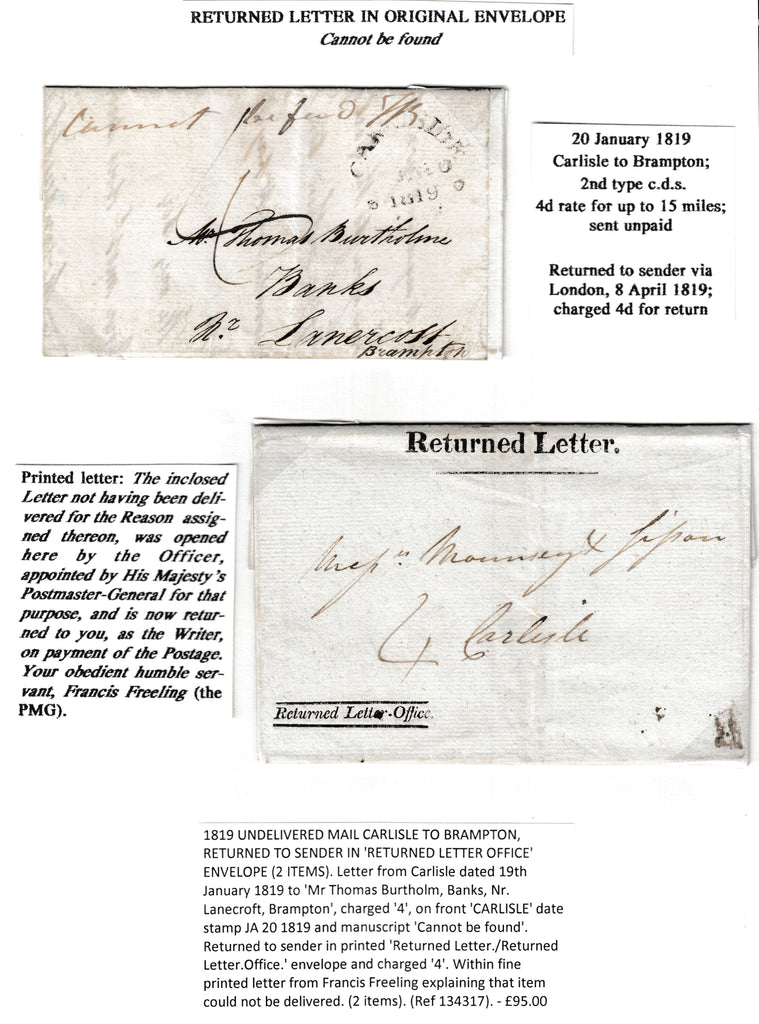 RETURNED LETTER IN ORIGINAL ENVELOPE
Cannot be found
Cannot be found
CARLISLE
JA 20
1819
4
Mr. Thomas Burtholme
Banks
Nr. Lanercost
Brampton
20 January 1819
Carlisle to Brampton;
2nd type c.d.s.
4d rate for up to 15 miles;
sent unpaid
Returned to sender via
London, 8 April 1819;
charged 4d for return
Printed letter: The inclosed
Letter not having been deli-
vered for the Reason assig-
ned thereon, was opened
here by the Officer,
appointed by His Majesty's
Postmaster-General for that
purpose, and is now retur-
ned to you, as the Writer,
on payment of the Postage.
Your obedient humble ser-
vant, Francis Freeling (the
PMG).
Returned Letter.
Messrs Mounsey &
4 Carlisle
Returned Letter-Office.
1819 UNDELIVERED MAIL CARLISLE TO BRAMPTON,
RETURNED TO SENDER IN 'RETURNED LETTER OFFICE'
ENVELOPE (2 ITEMS). Letter from Carlisle dated 19th
January 1819 to 'Mr Thomas Burtholm, Banks, Nr.
Lanecroft, Brampton', charged '4', on front 'CARLISLE' date
stamp JA 20 1819 and manuscript 'Cannot be found'.
Returned to sender in printed 'Returned Letter./Returned
Letter.Office.' envelope and charged '4'. Within fine
printed letter from Francis Freeling explaining that item
could not be delivered. (2 items). (Ref 134317). - £95.00